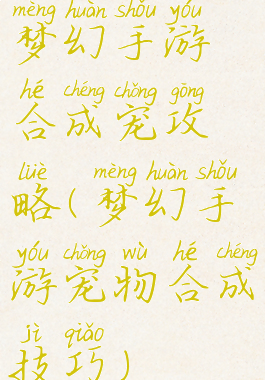 mèng huàn shǒu yóu
梦幻手游
hé chéng chǒng gōng
合成宠攻
lüè mèng huàn shǒu
略(梦幻手
yóu chǒng wù hé chéng
游宠物合成
jì qiǎo
技巧)